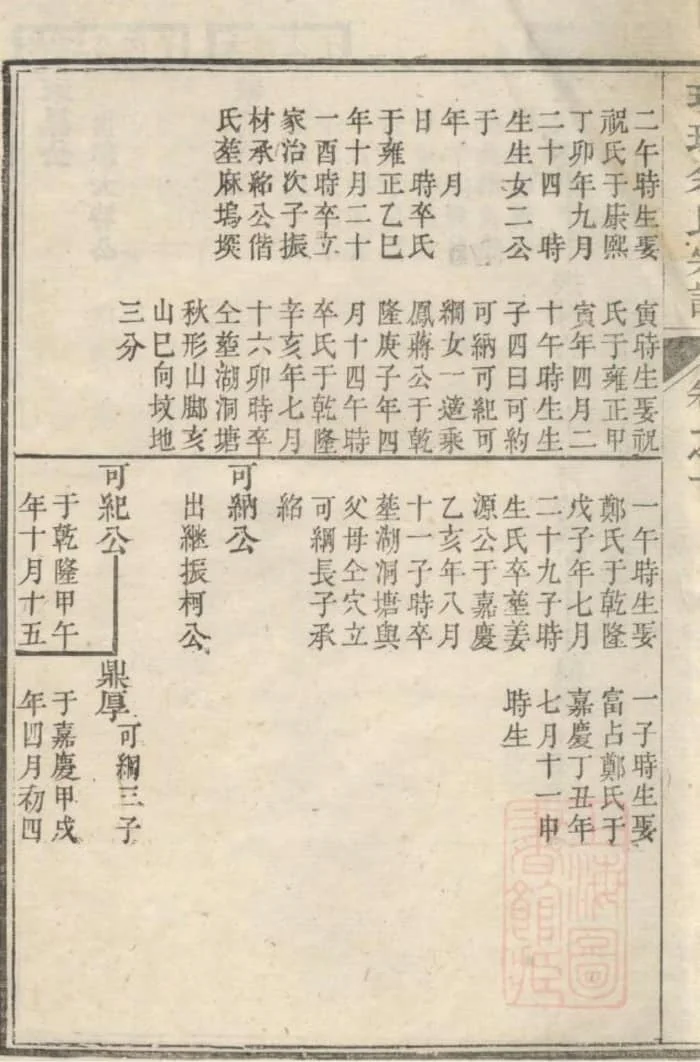 二午時生娶
祝氏于康熙
丁卯年九月
二十四　時
生生女二公
于
年　月
日　時卒氏
于雍正乙巳
年十月二十
一酉時卒立
家治次子振
材承紹公偕
氏塟麻塢塝
寅時生娶祝
氏于雍正甲
寅年四月二
十午時生生
子四曰可約
可納可紀可
綱女一適乘
鳳蔣公于乾
隆庚子年四
月十四午時
卒氏于乾隆
辛亥年七月
十六卯時卒
仝塟湖洞塘
秋形山脚亥
山巳向墳地
三分
一午時生娶
鄭氏于乾隆
戊子年七月
二十九子時
生氏卒塟姜
源公于嘉慶
乙亥年八月
十一子時卒
塟湖洞塘與
父母仝穴立
可綱長子承
紹
可納公
出繼振柯公
可紀公
于乾隆甲午
年十月十五
一子時生娶
富占鄭氏于
嘉慶丁丑年
七月十一申
時生
鼎厚
可綱三子
于嘉慶甲戌
年四月初四